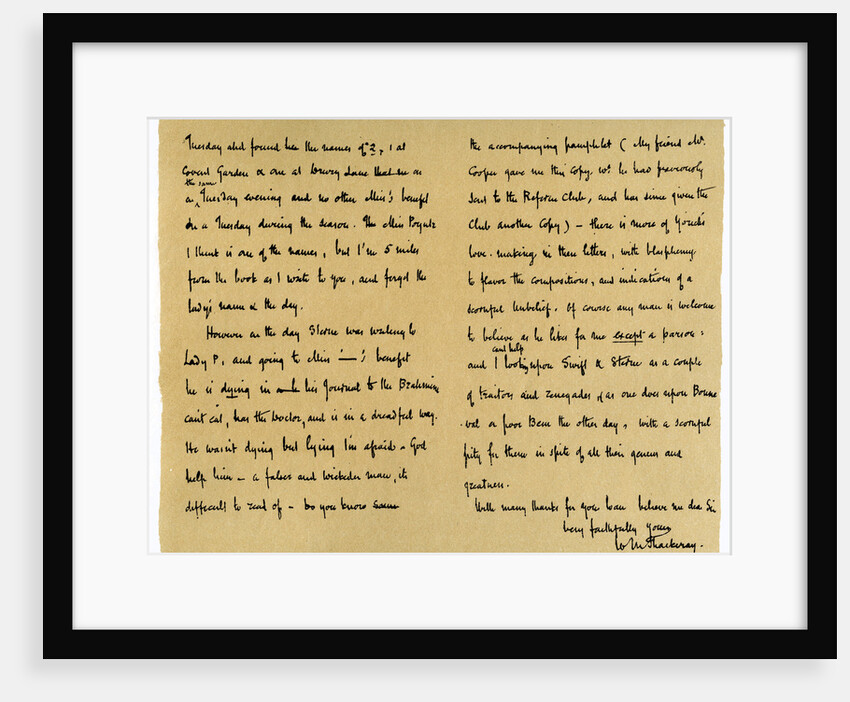 Tuesday and found here the names of 2, 1 at
Covent Garden & one at Drury Lane that on
the same
a Tuesday evening and no other Miss's benefit
On a Tuesday during the season. The Miss Poyntz
I think is one of the names, but I'm 5 miles
from the book as I write to you, and forget the
lady's name & the day.
However on the day Sterne was writing to
Lady P, and going to Miss —'s benefit
he is dying in his Journal to the Brahmine
can't eat, has the Doctor, and is in a dreadful way.
He wasn't dying but lying I'm afraid - God
help him - a falser and wickeder man, its
difficult to read of - Do you know
the accompanying pamphlet (My friend Mr.
Cooper gave me this copy wh. he had previously
sent to the Reform Club, and has since given the
Club another Copy) - there is more of Yorick's
love-making in these letters, with blasphemy
to flavor the compositions, and indications of a
scornful unbelief. Of course any man is welcome
to believe as he likes for me except a parson:
cant help
and I looking upon Swift & Sterne as a couple
of traitors and renegades as one does upon Bonne
val or poor Bem the other day, with a scornful
pity for them in spite of all their genius and
greatness.
With many thanks for your loan believe me dear Sir
Very faithfully Yours
W M Thackeray.